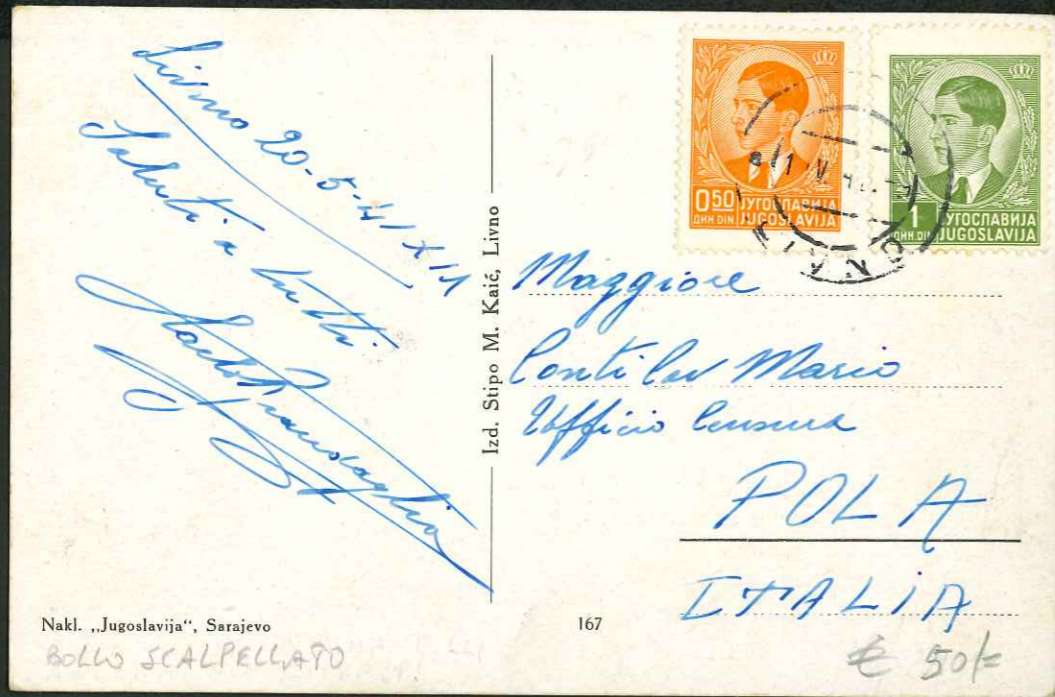 Livno 20-5-41/XIX
Saluti a tutti
Izd. Stipo M. Kaić, Livno
0.50 ЈУГОСЛАВИЈА
ДИН. DIN JUGOSLAVIJA
1 ЈУГОСЛАВИЈА
ДИН. DIN JUGOSLAVIJA
Maggiore
Conti Cav Mario
Ufficio Censura
POLA
ITALIA
Nakl. „Jugoslavija“, Sarajevo
167
BOLLO SCALPELLATO
€ 50/=